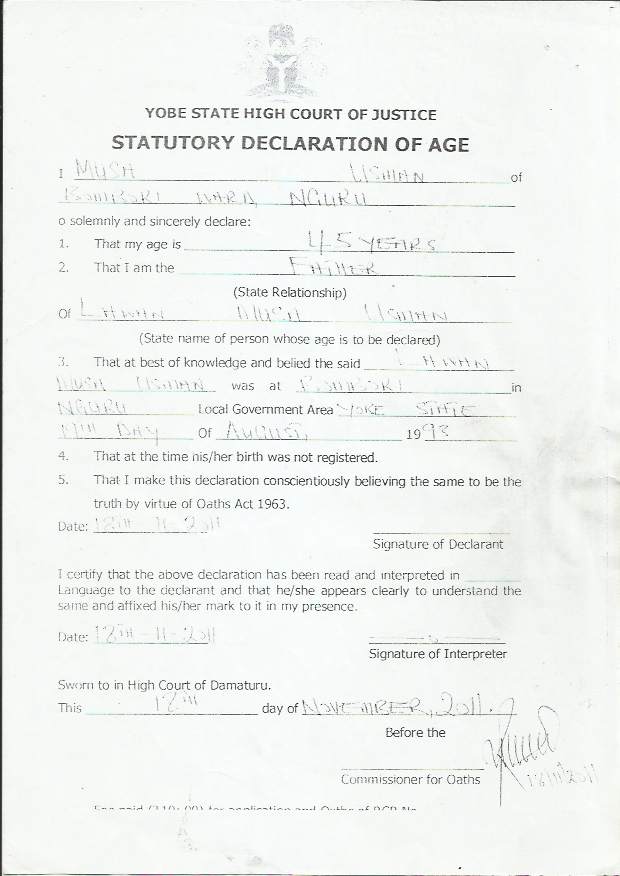 YOBE STATE HIGH COURT OF JUSTICE
STATUTORY DECLARATION OF AGE
I MUSA USMAN of
WARD, NGURU
o solemnly and sincerely declare:
1. That my age is 45 YEARS
2. That I am the FATHER
(State Relationship)
Of LAWAN MUSA USMAN
(State name of person whose age is to be declared)
3. That at best of knowledge and belied the said LAWAN
MUSA USMAN was at in
NGURU Local Government Area YOBE STATE
DAY Of AUGUST, 1993
4. That at the time his/her birth was not registered.
5. That I make this declaration conscientiously believing the same to be the
truth by virtue of Oaths Act 1963.
Date: 18TH-11-2011
Signature of Declarant
I certify that the above declaration has been read and interpreted in
Language to the declarant and that he/she appears clearly to understand the
same and affixed his/her mark to it in my presence.
Date: 18TH-11-2011
Signature of Interpreter
Sworn to in High Court of Damaturu.
This 18TH day of NOVEMBER, 2011.
Before the
18/11/2011
Commissioner for Oaths